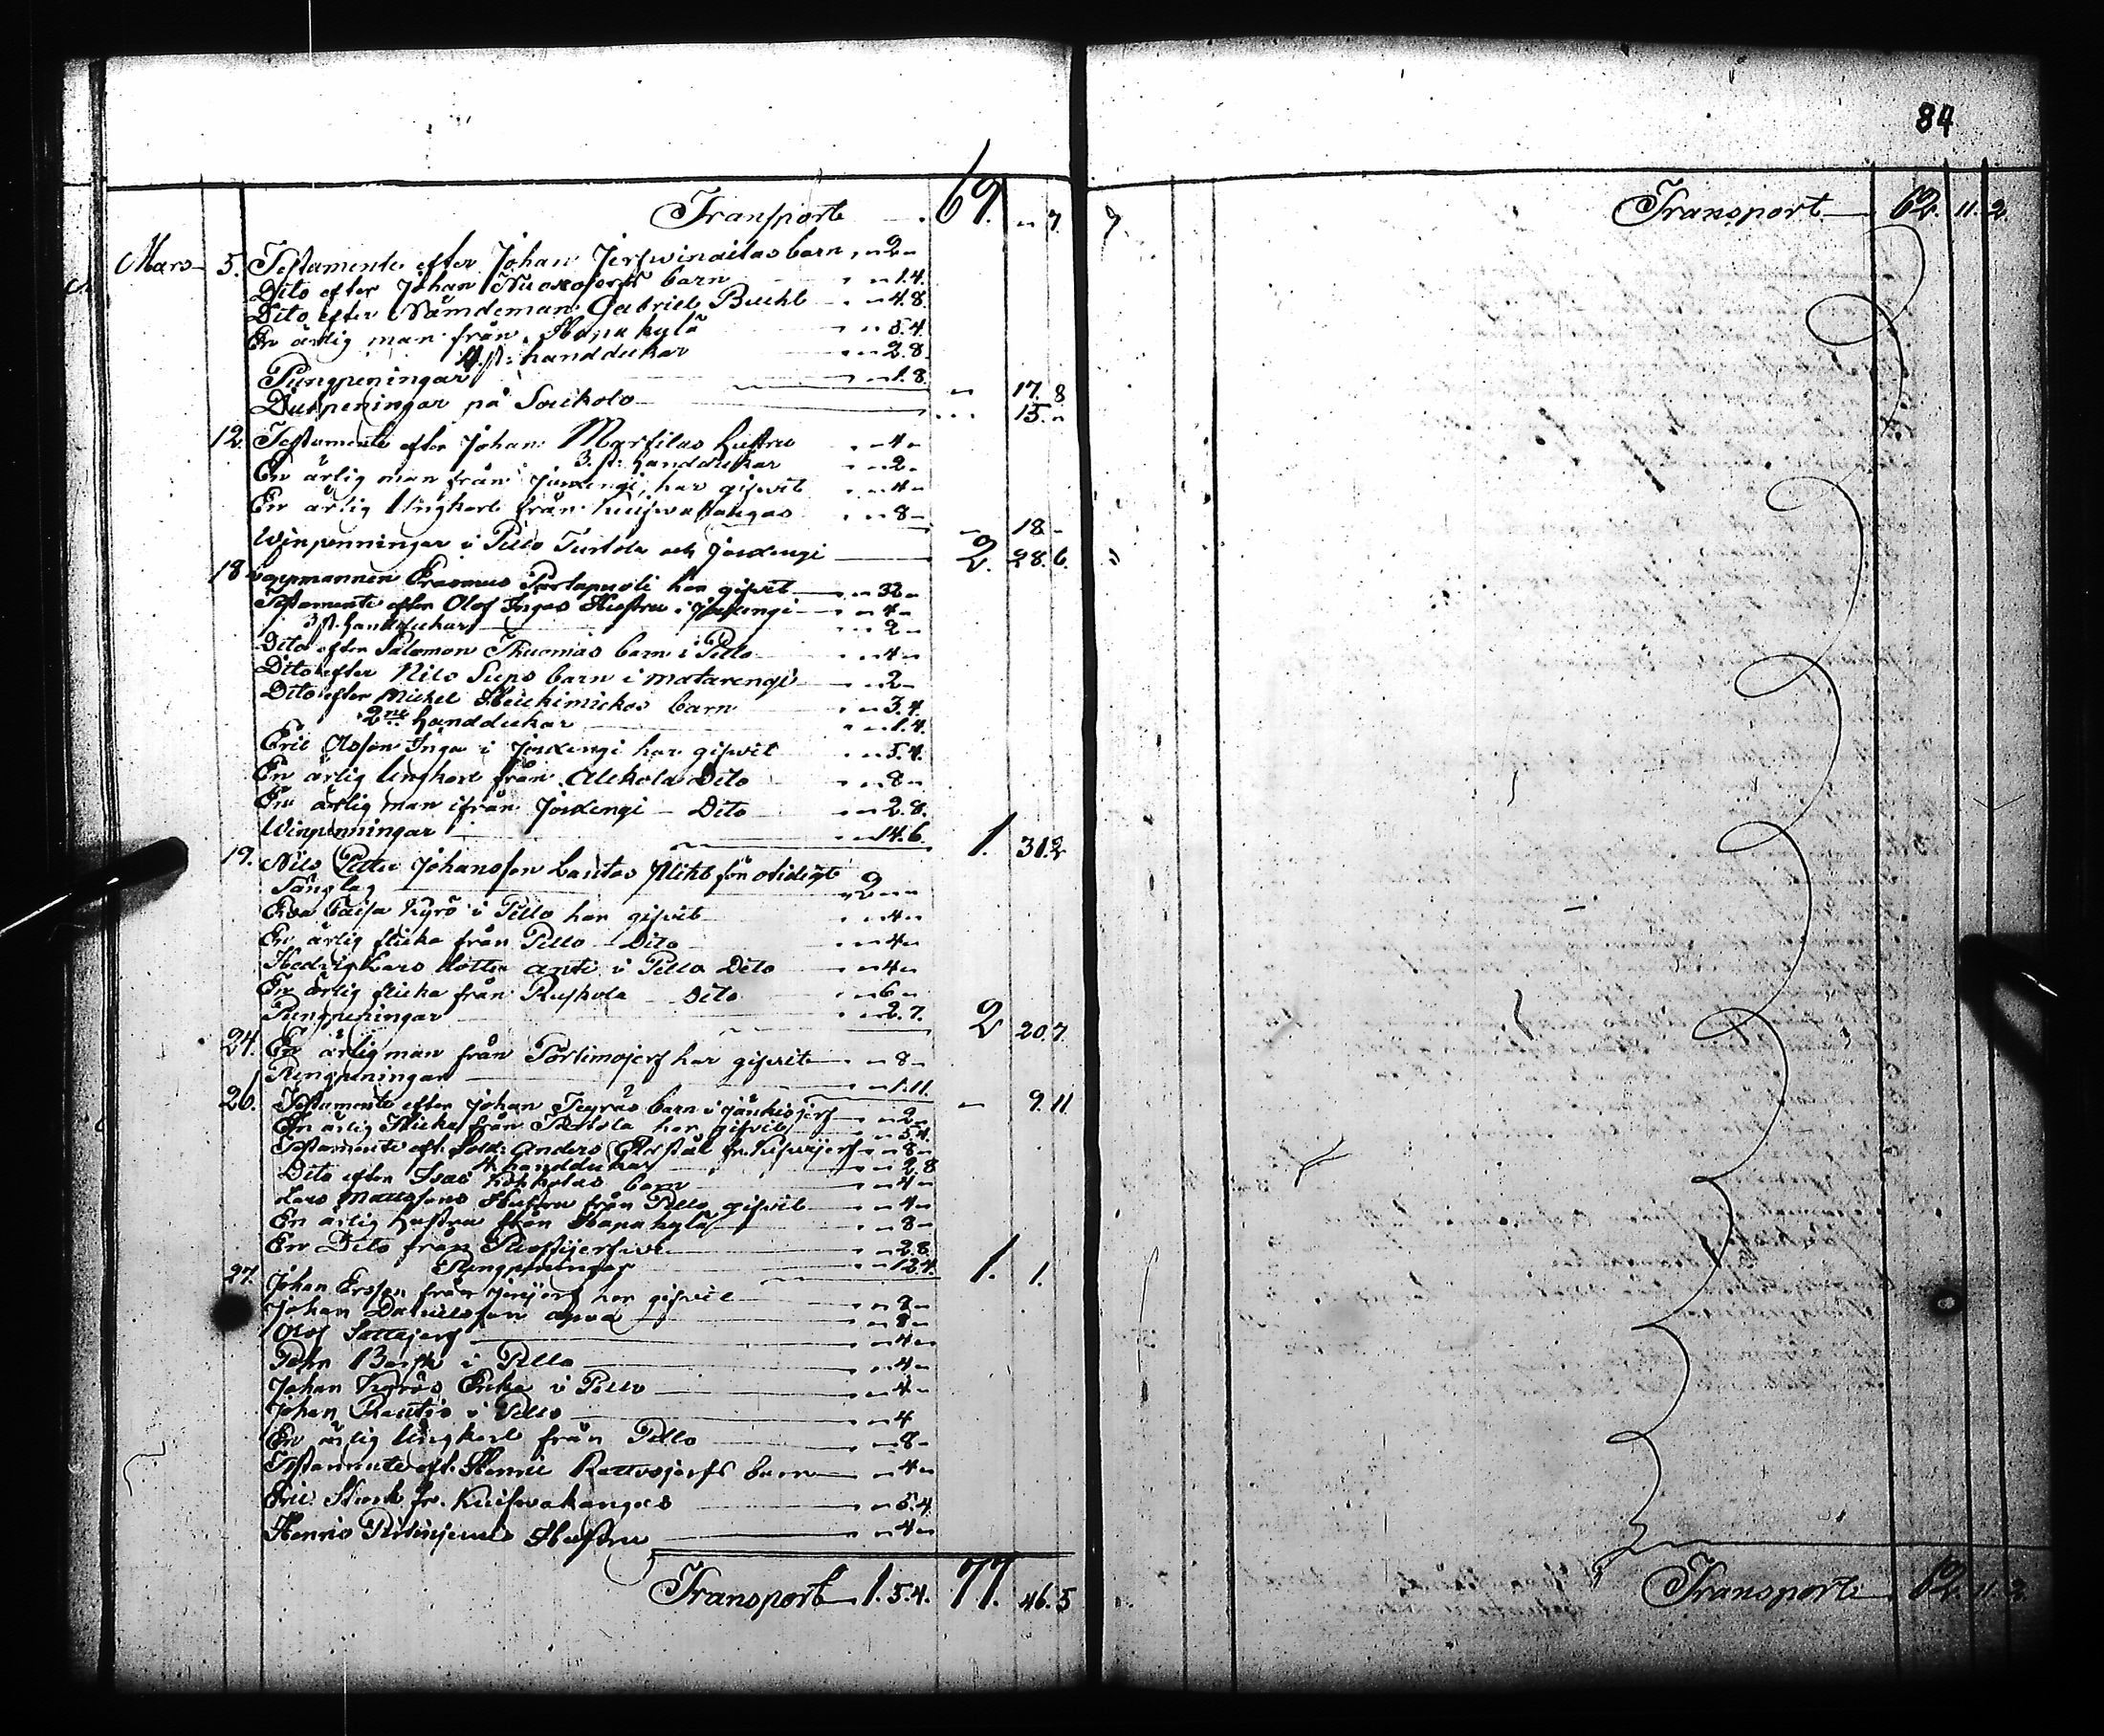 Transport 69. " 7.
Mars 5. Testamente efter Johan Jerfwinailas barn " 2 "
Dito efter Johan Kuoxojerfs barn " 1.4.
Dito efter Nämdeman Gabriel Bucht " 4.8.
En ärlig man från Hapakylä " 5.4
4 st: handdukar " 2.8
Pungpeningar " 1.8. " 17. 8
Dukpeningar på Soukolo 15. "
12. Testamente efter Johan Martilas hustru " 4 "
3. st: handdukar " 2 "
En ärlig man från Jouxengi har gifwit " 4 "
En ärlig Ungkarl från Kuifwakangas " 8 " " 18 "
Winpenningar i Pello Turtola och Jouxengi 2. 28. 6.
18 Erasmus Portapuoli har gifwit " 32 "
Testamente efter Olof Ingas Hustru i Jouxengi " 4 "
3 st. handdukar " 2 "
Dito efter Salomon Thuomas barn i Pello " 4 "
Dito efter Nils Sups barn i Matarengi " 2 "
Dito efter Mickel Heikimickos barn " 3.4.
2ne handdukar " 1.4.
Eric Olsson Inga i Jouxengi har gifwit " 5.4.
En ärlig Ungkarl från Alckola Dito " 8 "
En ärlig man ifrån Jouxengi Dito " 2.8.
Winpenningar " 14.6. 1. 31.2
19. Nils Petter Johansson Lautas för otidigt
Sänglag 2 " "
Eva Caisa Kyrö i Pello har gifwit " 4 "
En ärlig flicka från Pello Dito " 4 "
Hedvig Lars dotter Anti i Pello Dito " 4 "
En ärlig flicka från Ruskola Dito " 6 "
Pungpeningar " 2.7. 2 20.7.
24. En ärlig man från Portimojerf har gifwit " 8 "
Pungpeningar " 1.11. " 9.11
26. Testamente efter Johan Tegräs barn i Jänkisjerf " 2 "
En ärlig Flicka från Turtola har gifwit " 5.4.
Testamente eft. Sold: Anders " 8 "
4 handdukar " 2.8
Dito efter Isac barn " 4 "
Lars Mattssons Hustru från Pello gifwit " 4 "
En ärlig hustru från Hapakylä " 8 "
En Dito från " 2.8.
Pungpeningar " 13.4. 1. 1.
27. Johan Ersson från har gifwit " 8 "
Johan Danielsson " 8 "
Olof Sattajerf " 4 "
Pehr i Pello " 4 "
Johan Kyrös Enka i Pello " 4 "
Johan Rautio i Pello " 4
En ärlig Ungkarl från Pello " 8 "
Testamente eft. Henric Rattosjerfs barn " 4 "
Eric Stark fr. Kuifwakangas " 5.4.
Henric Hustru " 4 "
Transport 1.5.4. 77. 46.5
84
Transport 62. 11. 2
Transport 62. 11. 2.